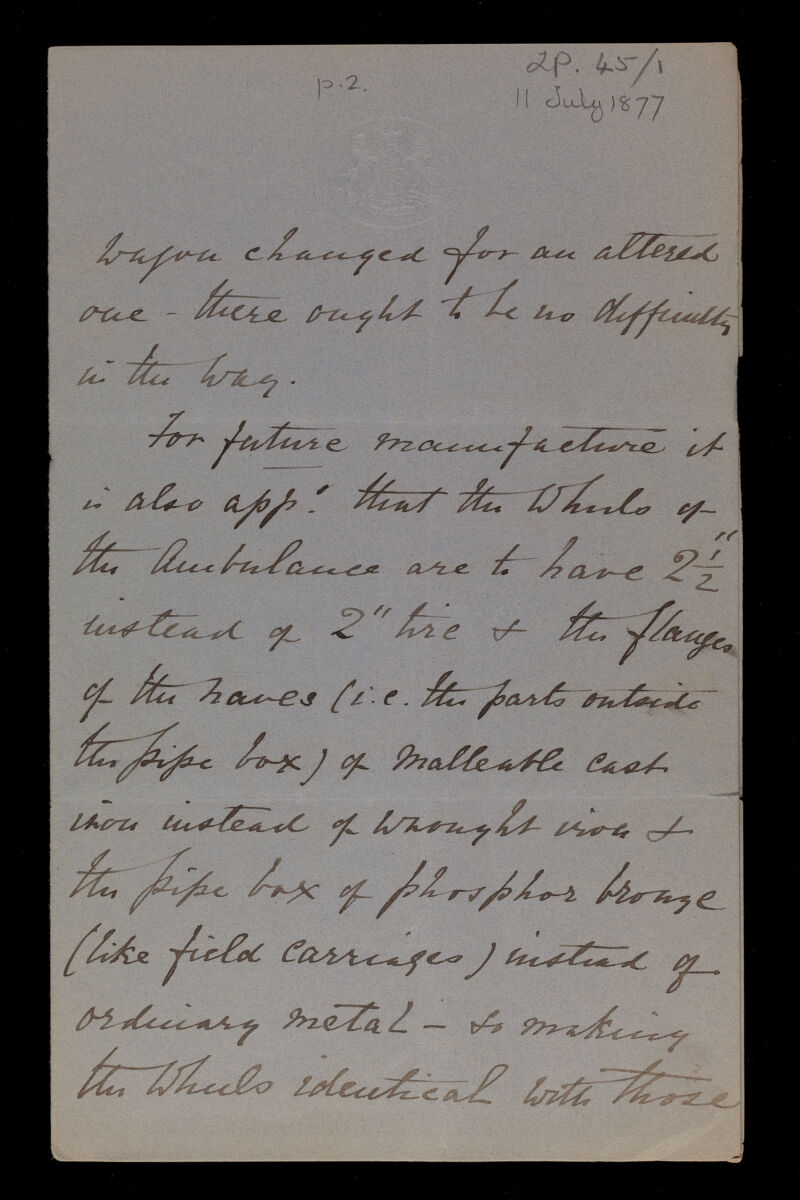 p.2.
LP. 45/1
11 July 1877
wagon changed for an altered
one - there ought to be no difficulty
in the way.
For future manufacture it
is also appd. that the Wheels of
the Ambulance are to have 2½"
instead of 2" tire & the flanges
of the naves (i.e. the parts outside
the pipe box) of malleable cast
iron instead of wrought iron &
the pipe box of phosphor bronze
(like field carriages) instead of
ordinary metal - so making
the Wheels identical with those